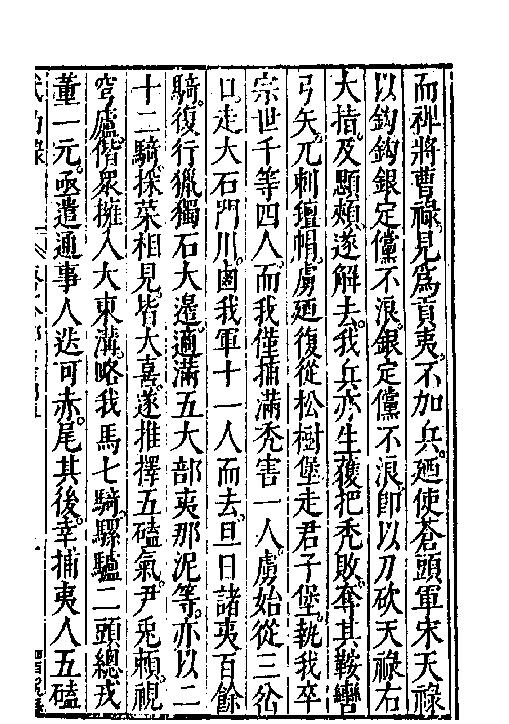 而裨將曹祿見爲貢夷不加兵廼使蒼頭軍宋天祿
以鈎鈎銀定儻不浪銀定儻不浪即以刀砍天祿右
大指及顋頰遂解去我兵亦生獲把禿敗奪其鞍轡
弓矢兀刺氊帽虜廼復從松樹堡走君子堡執我卒
宗世千等四人而我僅捕滿禿害一人虜始從三岔
口走大石門川鹵我軍十一人而去旦日諸夷百餘
騎復行獵獨石大邉適滿五大部夷那泥等亦以二
十二騎採菜相見皆大喜遂推擇五磕氣尹兎賴視
穹廬偕眾擁入大東溝略我馬七騎騾驢二頭總戎
董一元亟遣通事人迭可赤尾其後幸捕夷人五磕